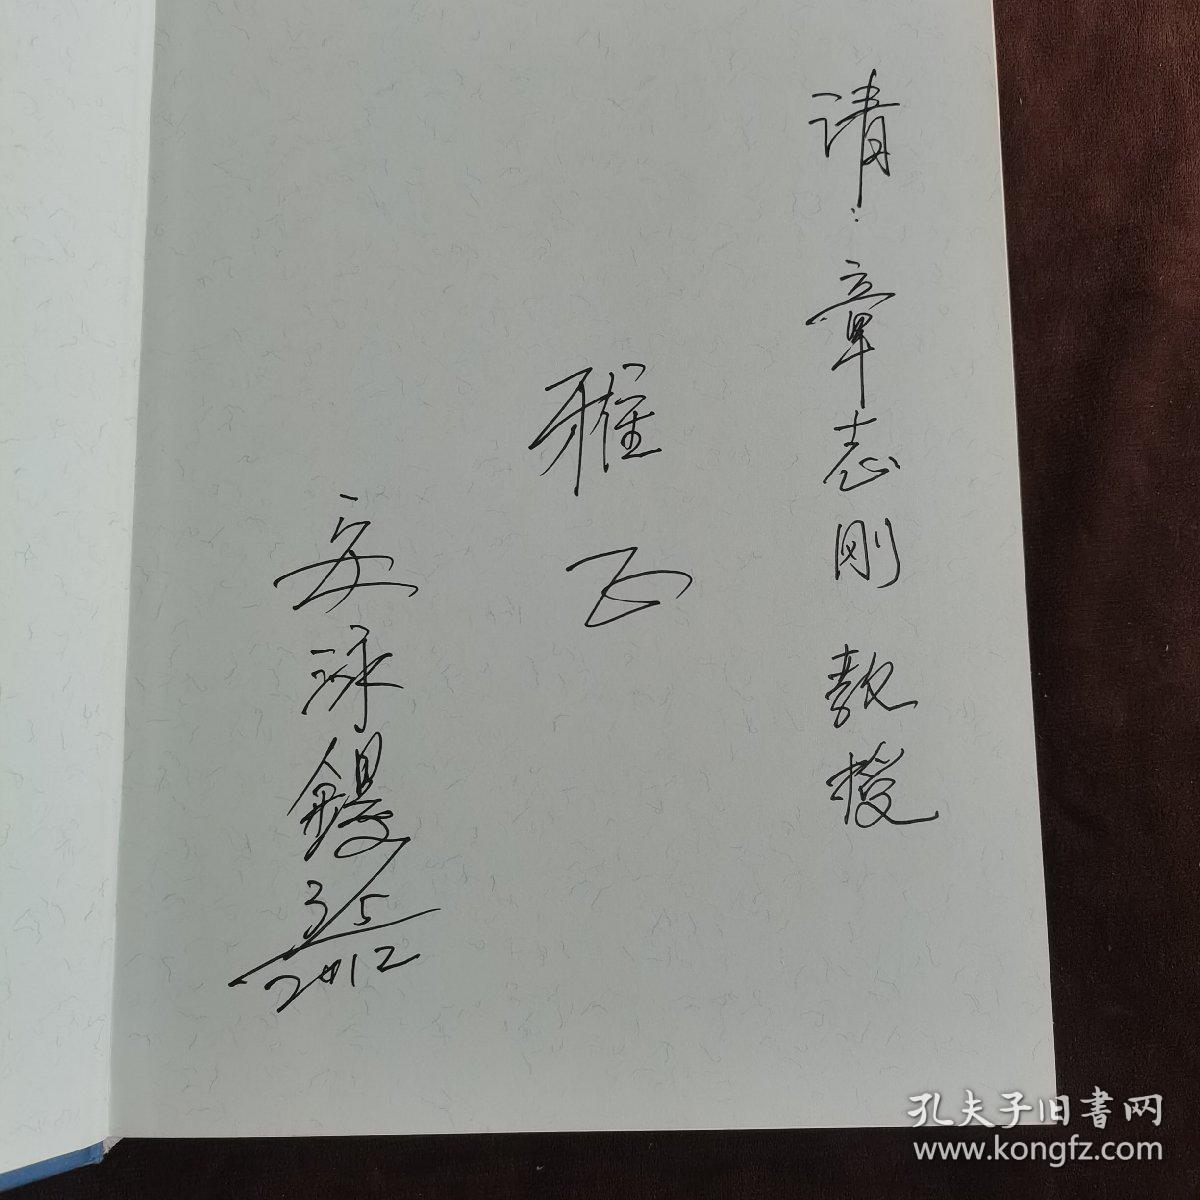 请：章志刚 教授
雅正
安泳鍀
3/5
2012
孔夫子旧书网
www.kongfz.com